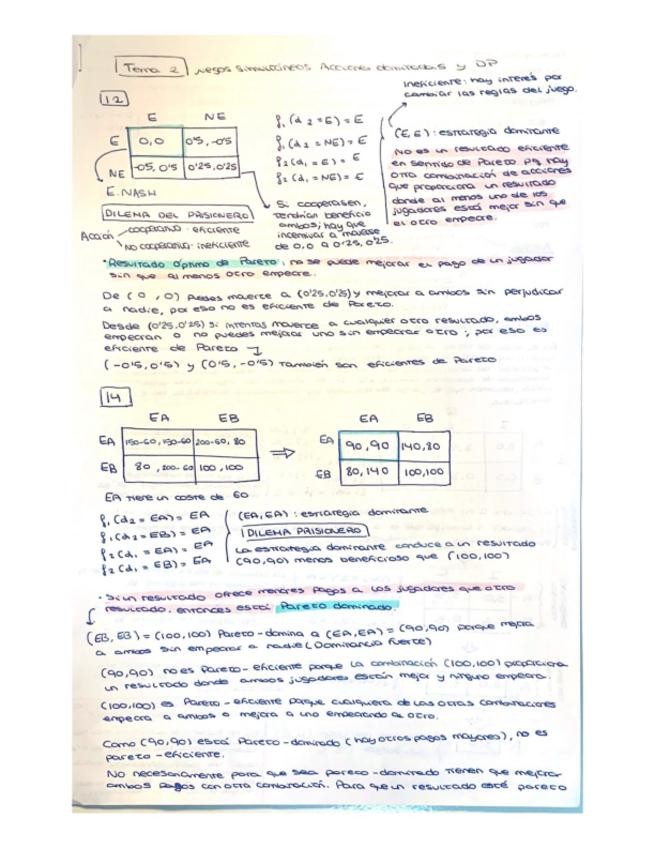 Tema 2 Juegos Simultáneos Acciones dominadas y DP
Ineficiente: hay interés por
cambiar las reglas del juego.
12
E NE
E 0,0 0'5, -0'5
NE -0'5, 0'5 0'25, 0'25
E. NASH
f1 (d2 = E) = E
f1 (d2 = NE) = E
f2 (d1 = E) = E
f2 (d1 = NE) = E
(E, E): estrategia dominante
No es un resultado eficiente
en sentido de Pareto pq hay
otra combinación de acciones
que proporciona un resultado
donde al menos uno de los
jugadores está mejor sin que
el otro empeore.
Si cooperasen,
tendrían beneficio
ambos; hay que
incentivar a moverse
de 0,0 a 0'25, 0'25.
DILEMA DEL PRISIONERO
Acción cooperativa: eficiente
No cooperativa: ineficiente
· Resultado óptimo de Pareto: no se puede mejorar el pago de un jugador
sin que al menos otro empeore.
De (0, 0) puedes moverte a (0'25, 0'25) y mejorar a ambos sin perjudicar
a nadie, por eso no es eficiente de Pareto.
Desde (0'25, 0'25) si intentas moverte a cualquier otro resultado, ambos
empeoran o no puedes mejorar uno sin empeorar otro; por eso es
eficiente de Pareto
(-0'5, 0'5) y (0'5, -0'5) también son eficientes de Pareto
14
EA EB
EA 150-60, 150-60 200-60, 80
EB 80, 200-60 100, 100
⇒
EA EB
EA 90, 90 140, 80
EB 80, 140 100, 100
EA tiene un coste de 60
f1 (d2 = EA) = EA
f1 (d2 = EB) = EA
f2 (d1 = EA) = EA
f2 (d1 = EB) = EA
(EA, EA): estrategia dominante
DILEMA PRISIONERO
La estrategia dominante conduce a un resultado
(90, 90) menos beneficioso que (100, 100)
· Si un resultado ofrece menores pagos a los jugadores que otro
resultado, entonces está Pareto dominado.
(EB, EB) = (100, 100) Pareto-domina a (EA, EA) = (90, 90) porque mejora
a ambos sin empeorar a nadie (Dominancia fuerte)
(90, 90) no es Pareto-eficiente porque la combinación (100, 100) proporciona
un resultado donde ambos jugadores están mejor y ninguno empeora.
(100, 100) es Pareto-eficiente porque cualquiera de las otras combinaciones
empeora a ambos o mejora a uno empeorando al otro.
Como (90, 90) está Pareto-dominado (hay otros pagos mayores), no es
pareto-eficiente.
No necesariamente para que sea pareto-dominado tienen que mejorar
ambos pagos con otra combinación. Para que un resultado esté pareto